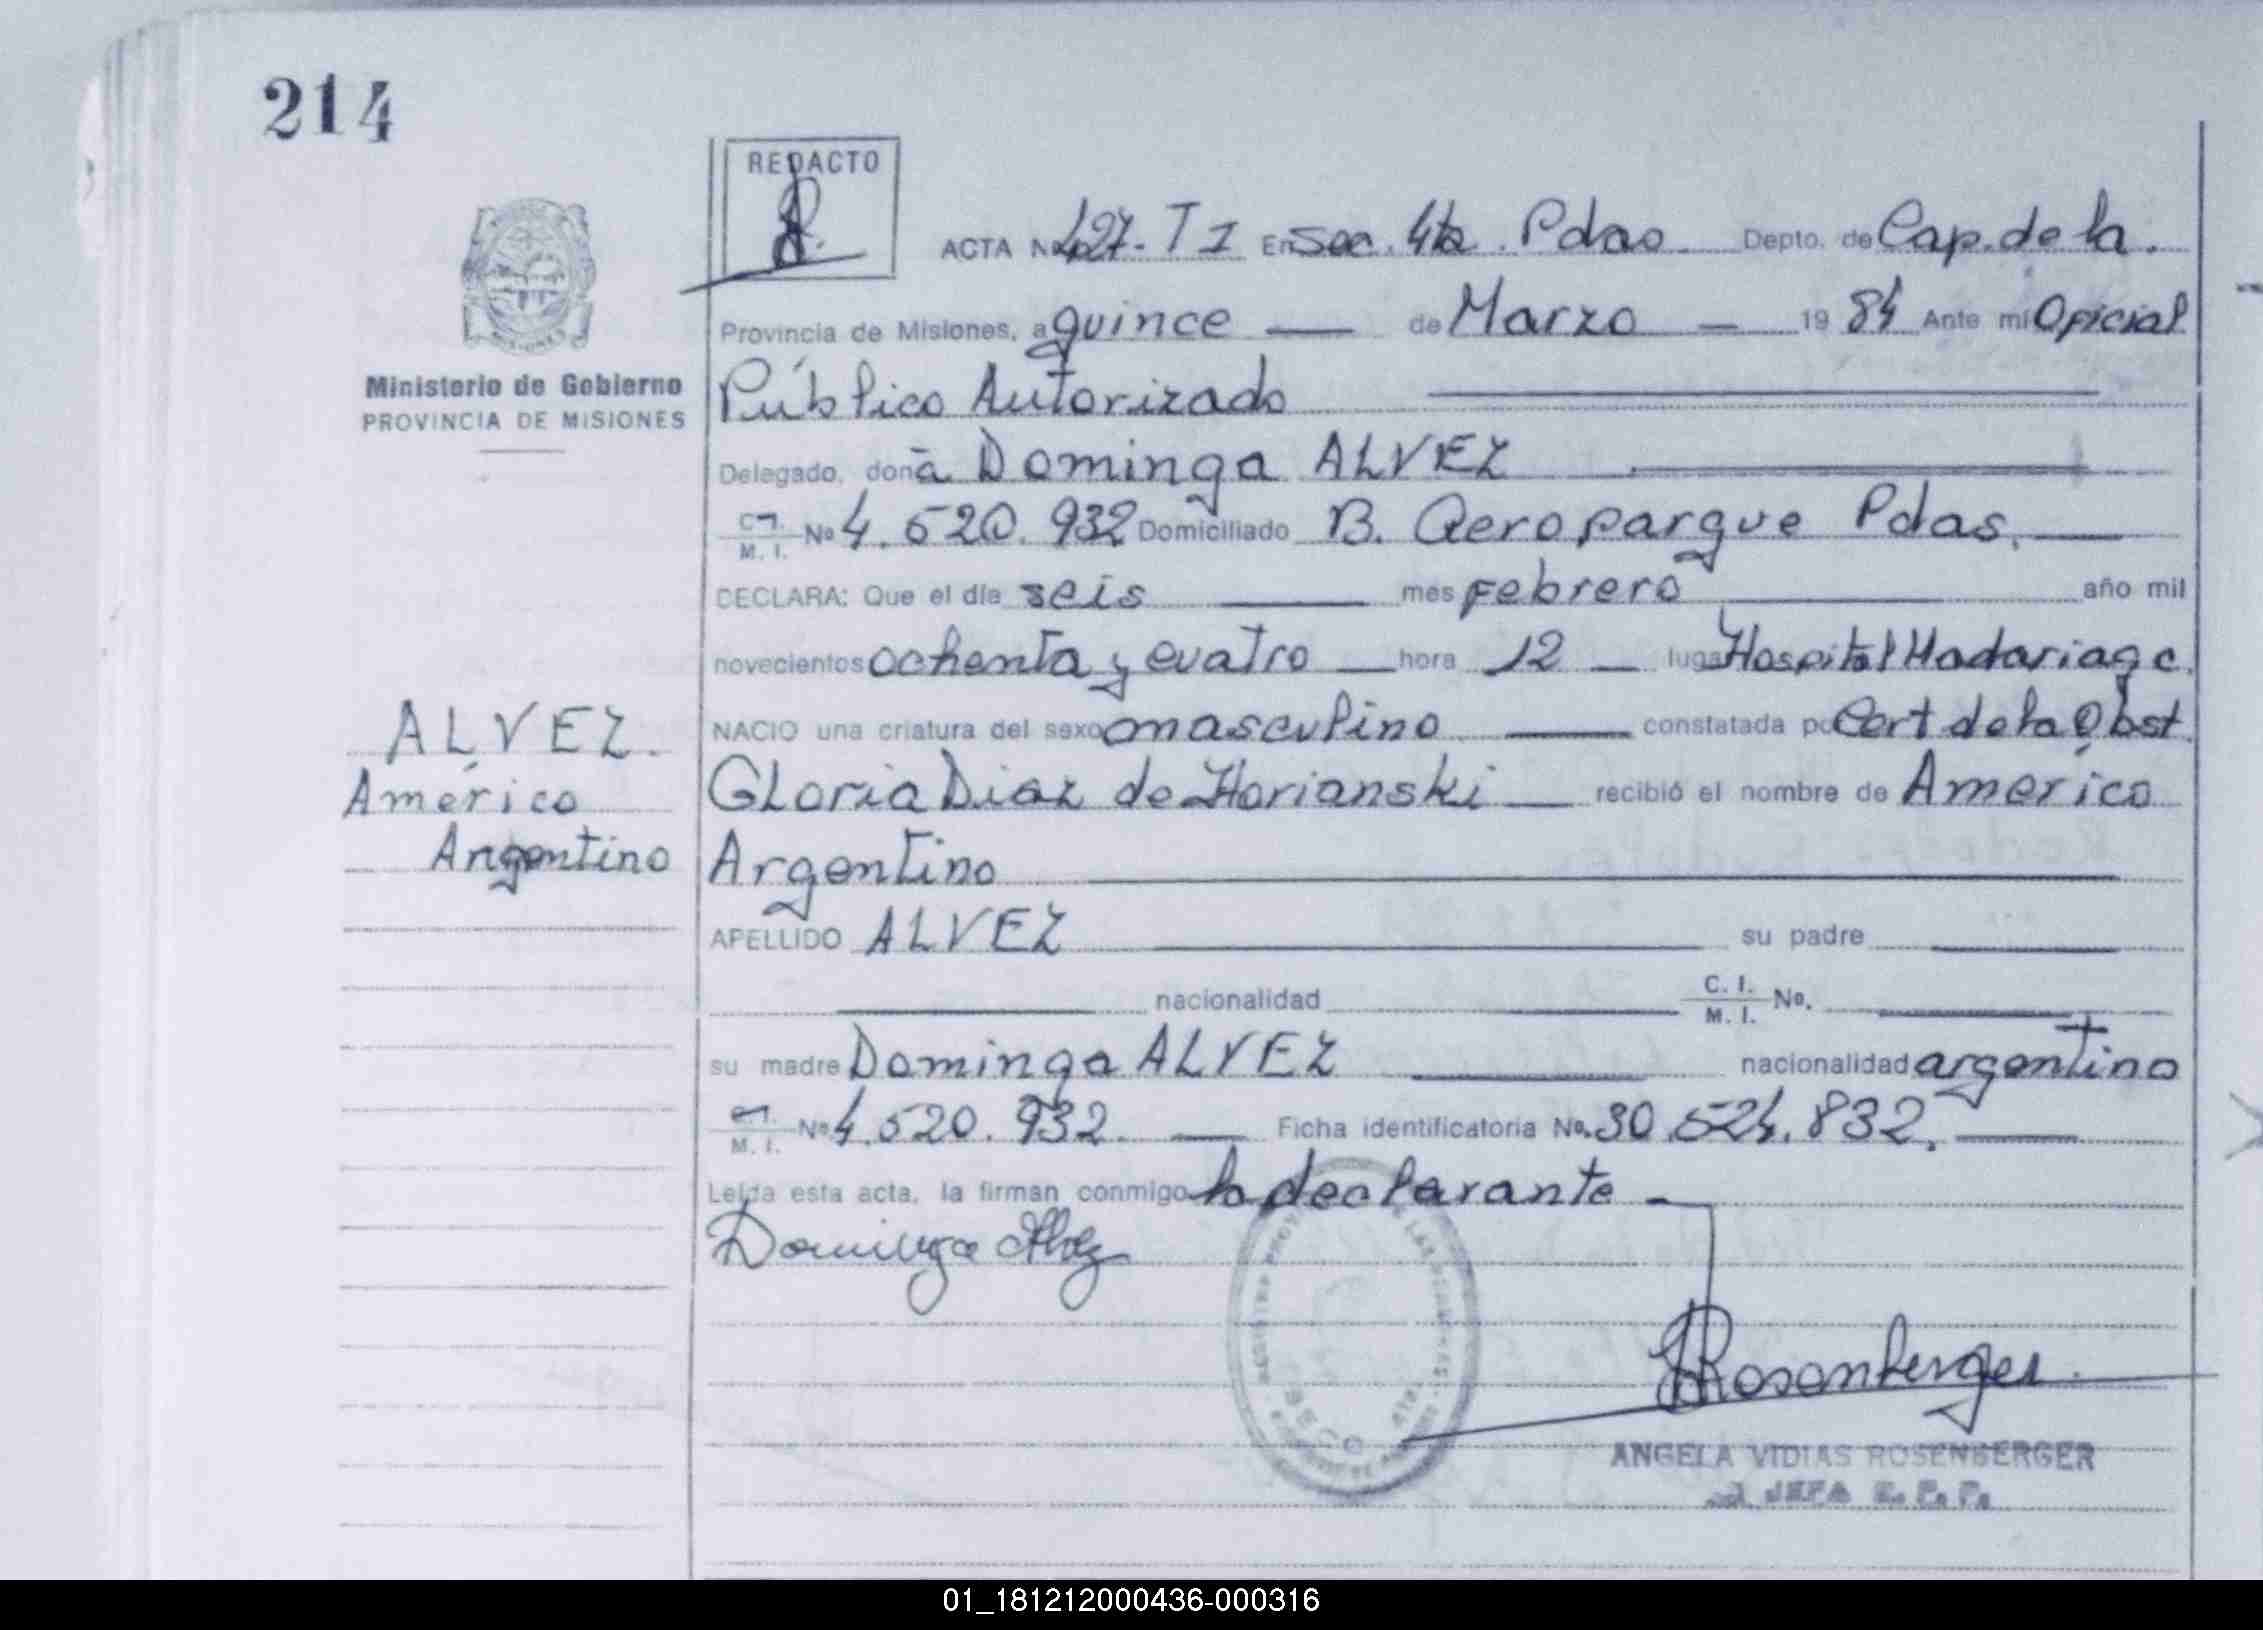 214
REDACTO
ACTA No 427. T 1 En Sec. 4ta. Pdas. Depto. de Cap. de la.
Provincia de Misiones, a quince de Marzo 19 84 Ante mi Oficial
Ministerio de Gobierno
PROVINCIA DE MISIONES
Público Autorizado
Delegado, doña Dominga ALVEZ
C.I. M. I. No 4.520.932 Domiciliado B. Aeroparque Pdas.
DECLARA: Que el día seis mes febrero año mil
novecientos ochenta y cuatro hora 12 lugar Hospital Madariaga c.
ALVEZ.
Américo
Argentino
NACIO una criatura del sexo masculino constatada por Cert de la Obst.
Gloria Diaz de Horianski recibió el nombre de Américo
Argentino
APELLIDO ALVEZ su padre
nacionalidad C. I. M. I. No.
su madre Dominga ALVEZ nacionalidad argentino
C.I. M. I. No. 4.520.932. Ficha identificatoria No. 30.524.832.
Leída esta acta, la firman conmigo la declarante
Dominga Alvez
Rosenberger
ANGELA VIDIAS ROSENBERGER
JEFA
01_181212000436-000316